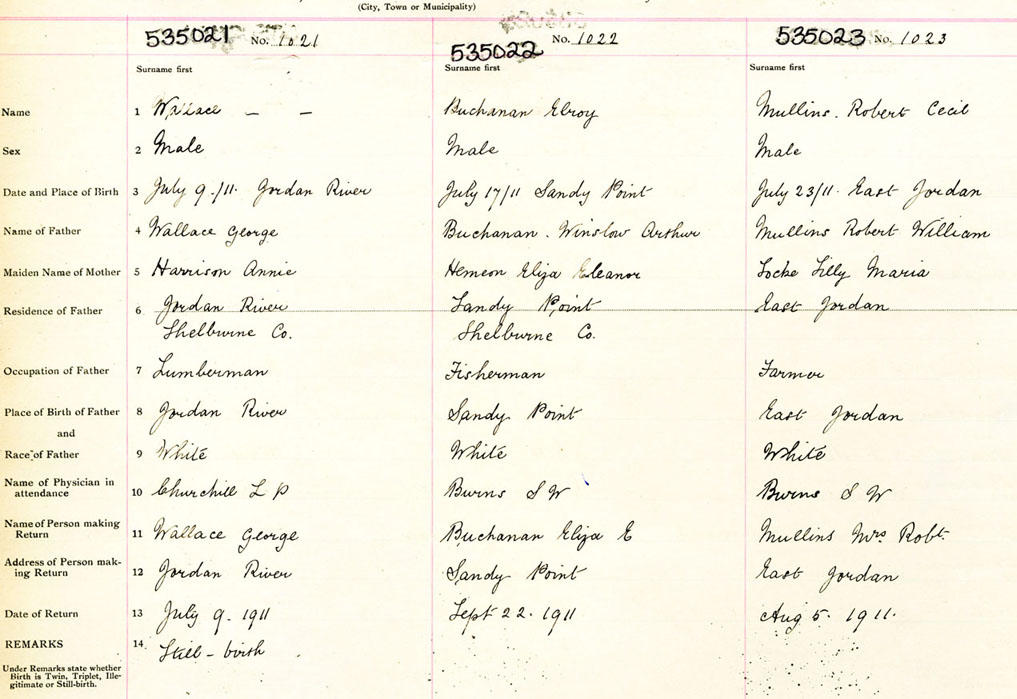 (City, Town or Municipality)
535021 No. 1021 535022 No. 1022 535023 No. 1023
Surname first Surname first Surname first
Name 1 Wallace — — Buchanan Elroy Mullins. Robert Cecil
Sex 2 Male Male Male
Date and Place of Birth 3 July 9./11. Jordan River July 17/11 Sandy Point July 23/11. East Jordan
Name of Father 4 Wallace George Buchanan. Winslow Arthur Mullins Robert William
Maiden Name of Mother 5 Harrison Annie Hemeon Eliza Eleanor Locke Lilly Maria
Residence of Father 6 Jordan River Sandy Point East Jordan
Shelburne Co. Shelburne Co.
Occupation of Father 7 Lumberman Fisherman Farmer
Place of Birth of Father 8 Jordan River Sandy Point East Jordan
and
Race of Father 9 White White White
Name of Physician in
attendance 10 Churchill L P Burns S W Burns S W
Name of Person making
Return 11 Wallace George Buchanan Eliza E Mullins Mrs Robt.
Address of Person mak-
ing Return 12 Jordan River Sandy Point East Jordan
Date of Return 13 July 9. 1911 Sept 22. 1911 Aug 5. 1911.
REMARKS 14 Still-birth
Under Remarks state whether
Birth is Twin, Triplet, Ille-
gitimate or Still-birth.